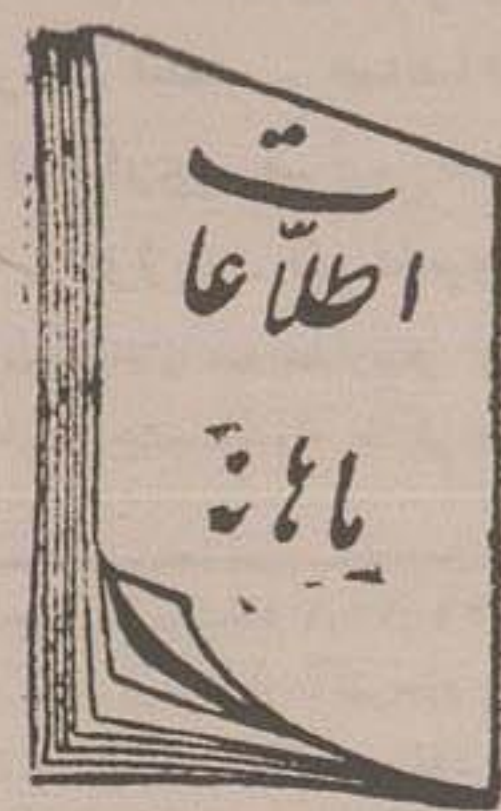 اطلّاعات
ماهانه